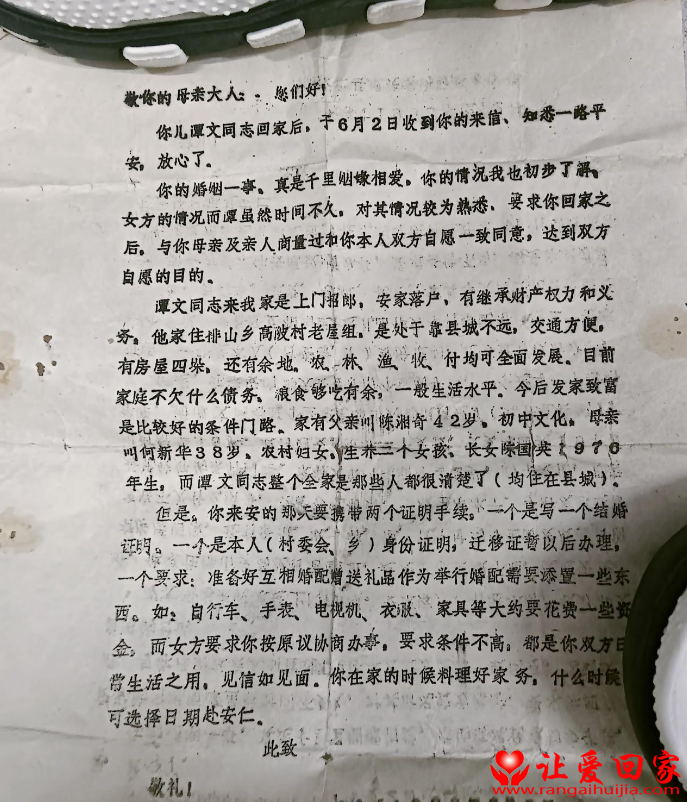 敬你的母亲大人：．您们好！
你儿谭文同志回家后，于6月2日收到你的来信、知悉一路平
安，放心了。
你的婚姻一事。真是千里姻缘相爱，你的情况我也初步了解、
女方的情况而谭虽然时间不久，对其情况较为熟悉、要求你回家之
后，与你母亲及亲人商量过和你本人双方自愿一致同意，达到双方
自愿的目的。
谭文同志来我家是上门招郎，安家落户，有继承财产权力和义
务。他家住排山乡高波村老屋组，是处于靠县城不远，交通方便，
有房屋四垛，还有余地。农、林、渔、牧、付均可全面发展。目前
家庭不欠什么债务、粮食够吃有余，一般生活水平。今后发家致富
是比较好的条件门路。家有父亲叫陈湘奇42岁。初中文化，母亲
叫何新华38岁、农村妇女，生养三个女孩、长女陈国英1976
年生，而谭文同志整个全家是那些人都很清楚了（均住在县城）。
但是，你来安的那天要携带两个证明手续，一个是写一个结婚
证明。一个是本人（村委会、乡）身份证明，迁移证暂以后办理，
一个要求：准备好互相婚配赠送礼品作为举行婚配需要添置一些东
西。如：自行车、手表、电视机、衣服、家具等大约要花费一些资
金，而女方要求你按原议协商办事，要求条件不高，都是你双方日
常生活之用，见信如见面。你在家的时候料理好家务，什么时候
可选择日期赴安仁。
此致
敬礼！
让爱回家
www.rangaihuijia.com